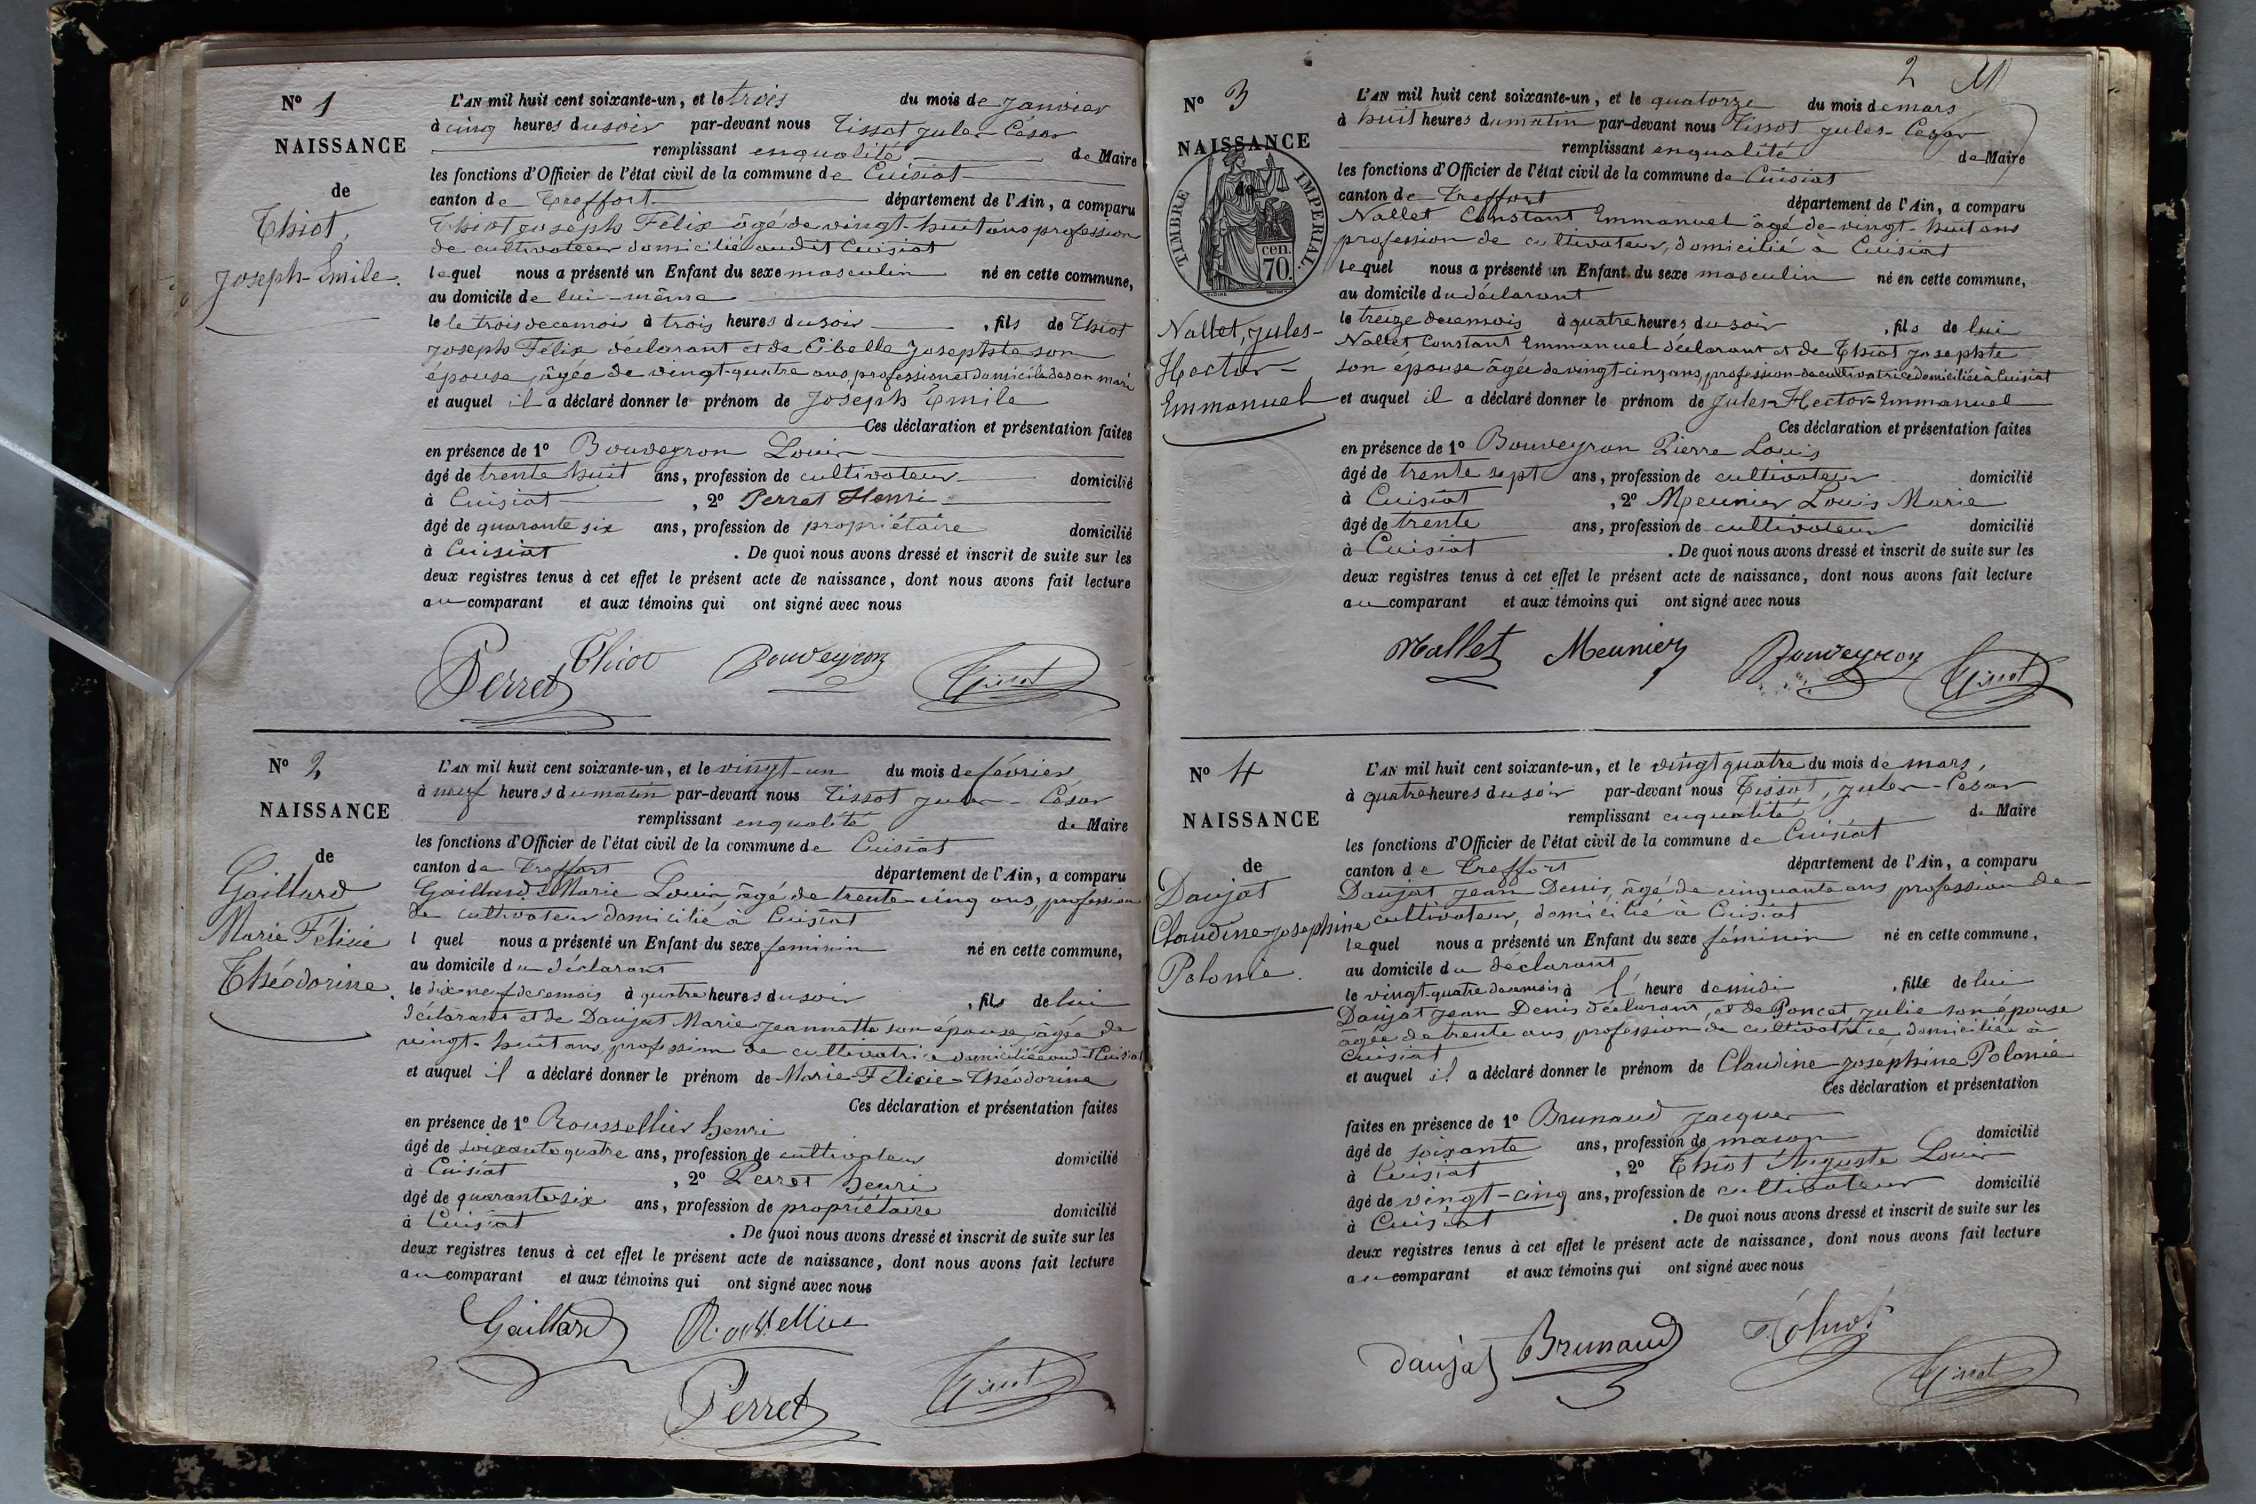 N° 1
NAISSANCE
de
Thiot,
Joseph-Emile.
L'AN mil huit cent soixante-un, et le trois du mois de Janvier
à cinq heures du soir par-devant nous Tissot Jules-César
remplissant en qualité de Maire
les fonctions d'Officier de l'état civil de la commune de Cuisiat
canton de Treffort département de l'Ain, a comparu
Thiot Joseph Félix âgé de vingt-huit ans profession
de cultivateur domicilié audit Cuisiat
lequel nous a présenté un Enfant du sexe masculin né en cette commune,
au domicile de lui-même
le le trois de ce mois à trois heures du soir, fils de Thiot
Joseph Félix déclarant et de Cibelle Josephte son
épouse, âgée de vingt-quatre ans, profession et domicile de son mari
et auquel il a déclaré donner le prénom de Joseph Emile
Ces déclaration et présentation faites
en présence de 1° Bouveyron Louis
âgé de trente huit ans, profession de cultivateur domicilié
à Cuisiat, 2° Perret Henri
âgé de quarante six ans, profession de propriétaire domicilié
à Cuisiat. De quoi nous avons dressé et inscrit de suite sur les
deux registres tenus à cet effet le présent acte de naissance, dont nous avons fait lecture
au comparant et aux témoins qui ont signé avec nous
Perret Thiot Bouveyron Tissot
N° 2
NAISSANCE
de
Gaillard
Marie Félicie
Théodorine.
L'AN mil huit cent soixante-un, et le vingt-un du mois de février
à neuf heures du matin par-devant nous Tissot Jules-César
remplissant en qualité de Maire
les fonctions d'Officier de l'état civil de la commune de Cuisiat
canton de Treffort département de l'Ain, a comparu
Gaillard Marie Louis, âgé de trente-cinq ans, profession
de cultivateur domicilié à Cuisiat
l quel nous a présenté un Enfant du sexe féminin né en cette commune,
au domicile du déclarant
le dix-neuf de ce mois à quatre heures du soir, fils de lui
déclarant et de Daujat Marie Jeannette son épouse, âgée de
vingt-huit ans, profession de cultivatrice domiciliée audit Cuisiat
et auquel il a déclaré donner le prénom de Marie-Félicie-Théodorine
Ces déclaration et présentation faites
en présence de 1° Roussellier henri
âgé de soixante quatre ans, profession de cultivateur domicilié
à Cuisiat, 2° Perret henri
âgé de quarante six ans, profession de propriétaire domicilié
à Cuisiat. De quoi nous avons dressé et inscrit de suite sur les
deux registres tenus à cet effet le présent acte de naissance, dont nous avons fait lecture
au comparant et aux témoins qui ont signé avec nous
Gaillard
Perret Tissot
2
N° 3
NAISSANCE
de
TIMBRE IMPÉRIAL.
70 cen.
Nallet, Jules-
Hector-
Emmanuel
L'AN mil huit cent soixante-un, et le quatorze du mois de mars
à huit heures du matin par-devant nous Tissot Jules-Cézar
remplissant en qualité de Maire
les fonctions d'Officier de l'état civil de la commune de Cuisiat
canton de Treffort département de l'Ain, a comparu
Nallet Constant Emmanuel âgé de vingt-huit ans
profession de cultivateur, domicilié à Cuisiat
lequel nous a présenté un Enfant du sexe masculin né en cette commune,
au domicile du déclarant
le treize de ce mois à quatre heures du soir, fils de lui
Nallet Constant Emmanuel déclarant et de Thiot Josephte
son épouse âgée de vingt-cinq ans, profession de cultivatrice domiciliée à Cuisiat
et auquel il a déclaré donner le prénom de Jules-Hector-Emmanuel
Ces déclaration et présentation faites
en présence de 1° Bouveyron Pierre Louis
âgé de trente sept ans, profession de cultivateur domicilié
à Cuisiat, 2° Meunier Louis Marie
âgé de trente ans, profession de cultivateur domicilié
à Cuisiat. De quoi nous avons dressé et inscrit de suite sur les
deux registres tenus à cet effet le présent acte de naissance, dont nous avons fait lecture
au comparant et aux témoins qui ont signé avec nous
Nallet Meunier Bouveyron Tissot
N° 4
NAISSANCE
de
Daujat
Claudine-Josephine
Polonie.
L'AN mil huit cent soixante-un, et le vingt quatre du mois de mars,
à quatre heures du soir par-devant nous Tissot, Jules-César
remplissant en qualité de Maire
les fonctions d'Officier de l'état civil de la commune de Cuisiat
canton de Treffort département de l'Ain, a comparu
Daujat Jean Denis, âgé de cinquante ans profession de
cultivateur, domicilié à Cuisiat
lequel nous a présenté un Enfant du sexe féminin né en cette commune,
au domicile du déclarant
le vingt-quatre de ce mois à l' heure de midi, fille de lui
Daujat Jean Denis déclarant, et de Poncet Julie son épouse
âgée de trente ans profession de cultivatrice domiciliée à
Cuisiat
et auquel il a déclaré donner le prénom de Claudine-Joséphine Polonie
Ces déclaration et présentation
faites en présence de 1° Brunaud Jacques
âgé de soixante ans, profession de maçon domicilié
à Cuisiat, 2° Thiot Auguste Louis
âgé de vingt-cinq ans, profession de cultivateur domicilié
à Cuisiat. De quoi nous avons dressé et inscrit de suite sur les
deux registres tenus à cet effet le présent acte de naissance, dont nous avons fait lecture
au comparant et aux témoins qui ont signé avec nous
daujat Brunaud Thiot Tissot